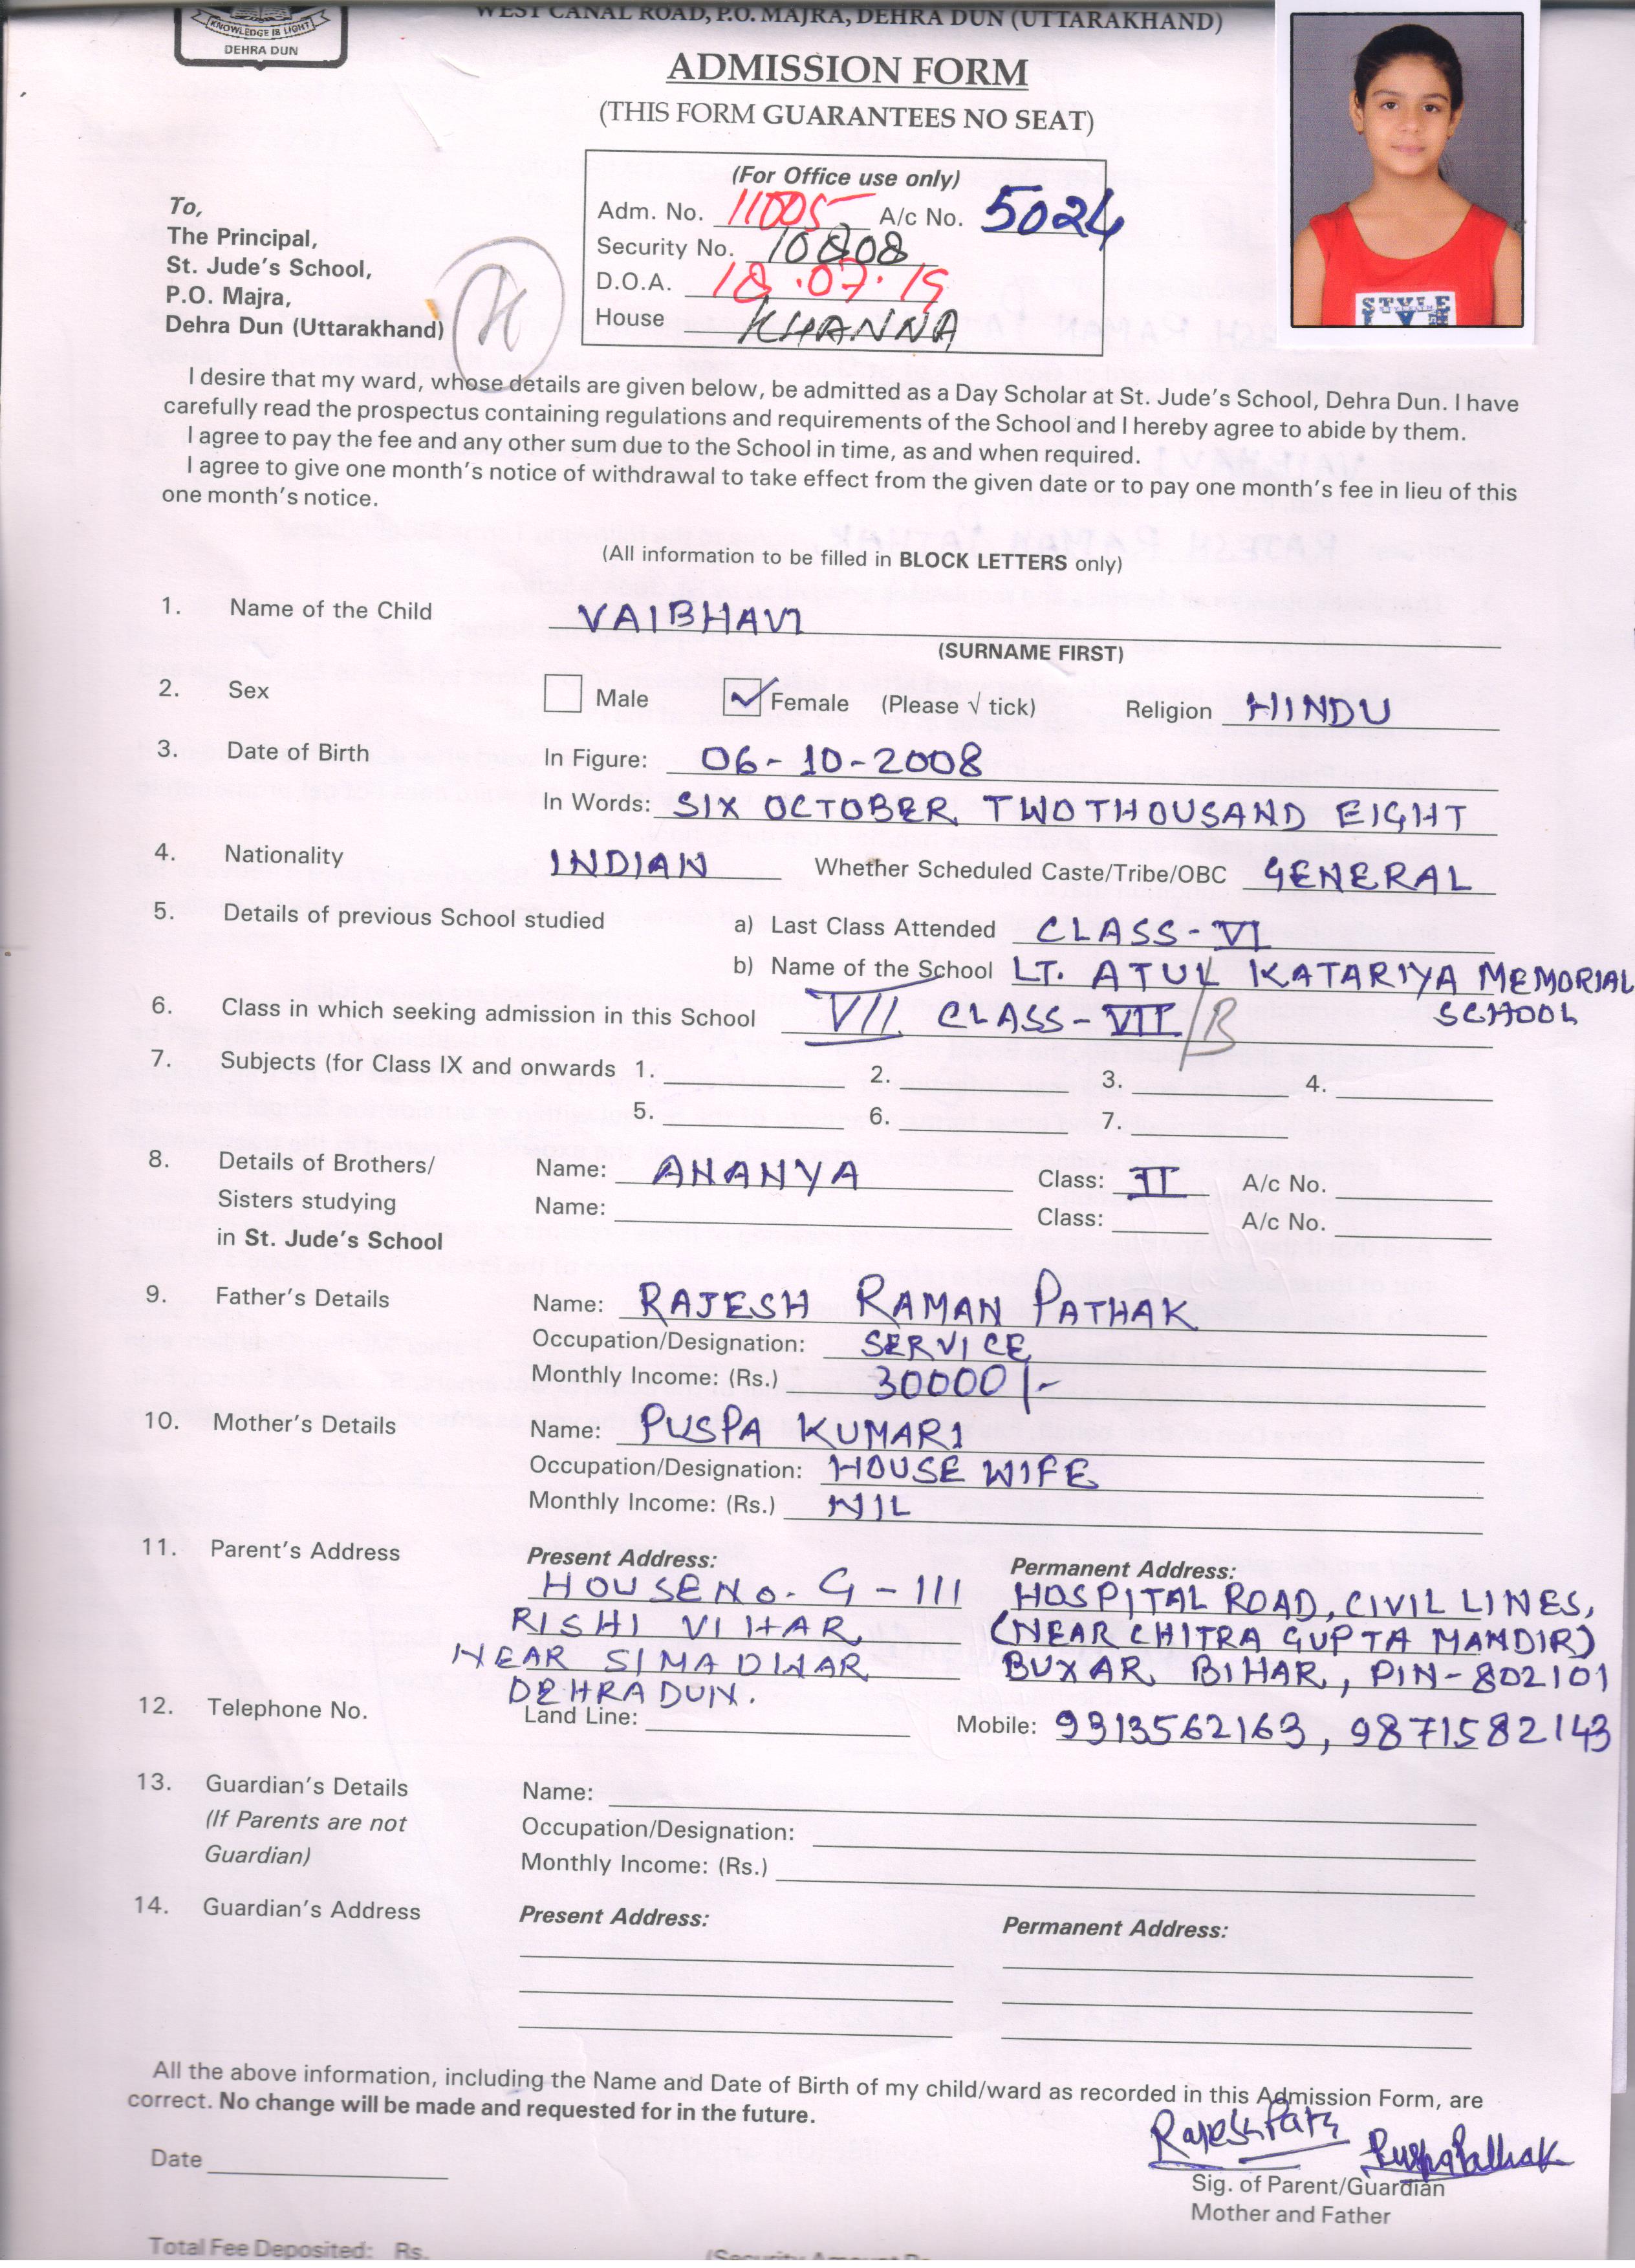 KNOWLEDGE IS LIGHT
DEHRA DUN
WEST CANAL ROAD, P.O. MAJRA, DEHRA DUN (UTTARAKHAND)
ADMISSION FORM
(THIS FORM GUARANTEES NO SEAT)
(For Office use only)
Adm. No. 11005 A/c No. 5024
Security No. 10808
D.O.A. 18.07.19
House KHANNA
To,
The Principal,
St. Jude's School,
P.O. Majra,
Dehra Dun (Uttarakhand)
STYLE
I desire that my ward, whose details are given below, be admitted as a Day Scholar at St. Jude's School, Dehra Dun. I have
carefully read the prospectus containing regulations and requirements of the School and I hereby agree to abide by them.
I agree to pay the fee and any other sum due to the School in time, as and when required.
I agree to give one month's notice of withdrawal to take effect from the given date or to pay one month's fee in lieu of this
one month's notice.
(All information to be filled in BLOCK LETTERS only)
1. Name of the Child VAIBHAVI
(SURNAME FIRST)
2. Sex Male Female (Please √ tick) Religion HINDU
3. Date of Birth In Figure: 06-10-2008
In Words: SIX OCTOBER TWO THOUSAND EIGHT
4. Nationality INDIAN Whether Scheduled Caste/Tribe/OBC GENERAL
5. Details of previous School studied a) Last Class Attended CLASS-VI
b) Name of the School LT. ATUL KATARIYA MEMORIAL
SCHOOL
6. Class in which seeking admission in this School VII CLASS-VII/B
7. Subjects (for Class IX and onwards 1. 2. 3. 4.
5. 6. 7.
8. Details of Brothers/ Name: ANANYA Class: II A/c No.
Sisters studying Name: Class: A/c No.
in St. Jude's School
9. Father's Details Name: RAJESH RAMAN PATHAK
Occupation/Designation: SERVICE
Monthly Income: (Rs.) 30000/-
10. Mother's Details Name: PUSPA KUMARI
Occupation/Designation: HOUSE WIFE
Monthly Income: (Rs.) NIL
11. Parent's Address Present Address: Permanent Address:
HOUSE NO. G-111 HOSPITAL ROAD, CIVIL LINES,
RISHI VIHAR (NEAR CHITRA GUPTA MANDIR)
NEAR SIMA DWAR BUXAR, BIHAR, PIN-802101
DEHRADUN.
12. Telephone No. Land Line: Mobile: 9313562163, 9871582143
13. Guardian's Details Name:
(If Parents are not Occupation/Designation:
Guardian) Monthly Income: (Rs.)
14. Guardian's Address Present Address: Permanent Address:
All the above information, including the Name and Date of Birth of my child/ward as recorded in this Admission Form, are
correct. No change will be made and requested for in the future.
Date
Sig. of Parent/Guardian
Mother and Father
Total Fee Deposited: Rs.